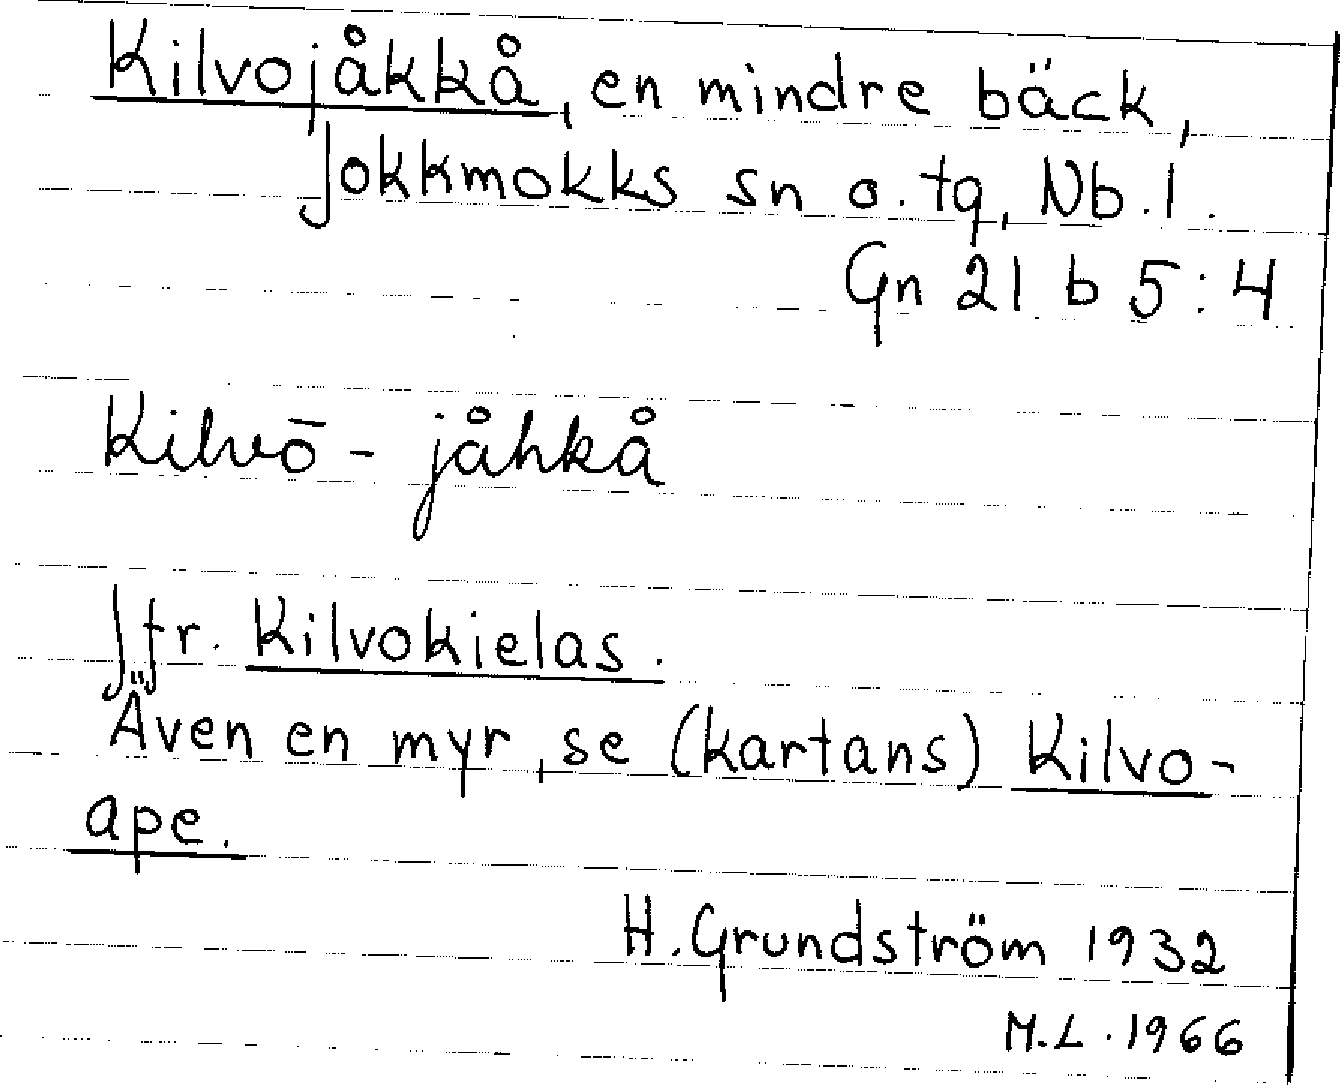 Kilvojåkkå, en mindre bäck,
Jokkmokks sn o. tg, Nb. l.
Gn 21 b 5:4
Kilvō - jåhkå
Jfr. Kilvokielas.
Även en myr, se (kartans) Kilvo-
ape.
H. Grundström 1932
M.L. 1966